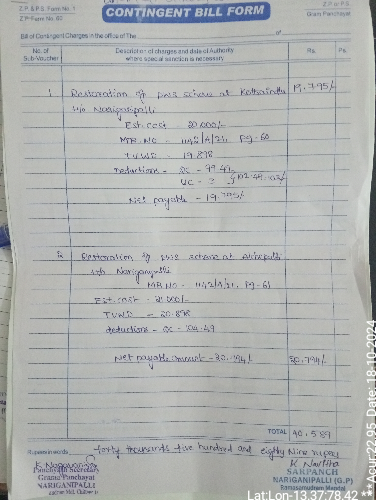 Z.P. & P.S. Form No. 1
Z.P. Form No. 60
CONTINGENT BILL FORM
Z.P or P.S.
Gram Panchayat
Bill of Contingent Charges in the office of The
of
No. of Sub-Voucher
Description of charges and date of Authority where special sanction is necessary
Rs.
Ps.
1 Restoration of PWS scheme at 19.795/-
H/o Nariganipalli
Est. cost 20.000/-
M.B. NO - 1142/A/21, Pg-60
T.V.W.D - 19.898
deductions - QC - 99.49
Net payable - 19.795/-
2 Restoration of PWS scheme at
H/o
M.B. NO - 1142/A/21, Pg-61
Est. cost - 21.000/-
T.V.W.D - 20.898
deductions - QC - 104.49
Net payable amount - 20.794/- 20.794/-
TOTAL 40.589
Rupees in words forty thousands five hundred and eighty Nine rupees
Panchayat Secretary
Grama Panchayat
NARIGANIPALLI
SARPANCH
NARIGANIPALLI (G.P)
Ramasamudram Mandal
Lat:Lon-13.37:78.42
***Acu:22.95 Date:18-10-2024